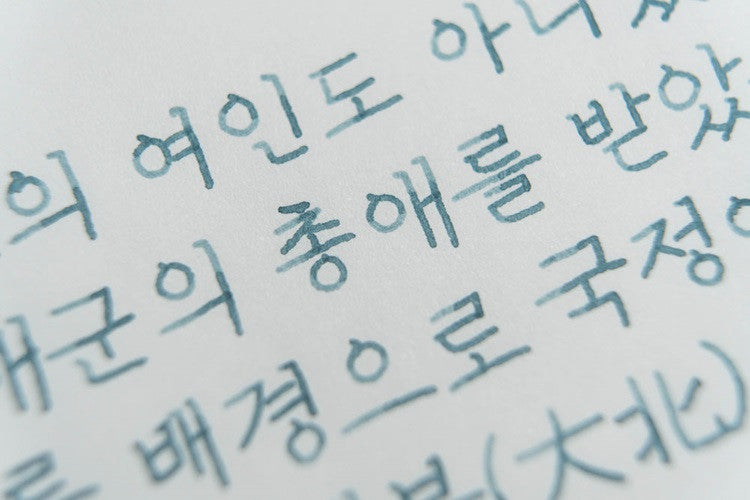 의 여인도 아니
군의 총애를 받았
를 배경으로 국정
북(大北)